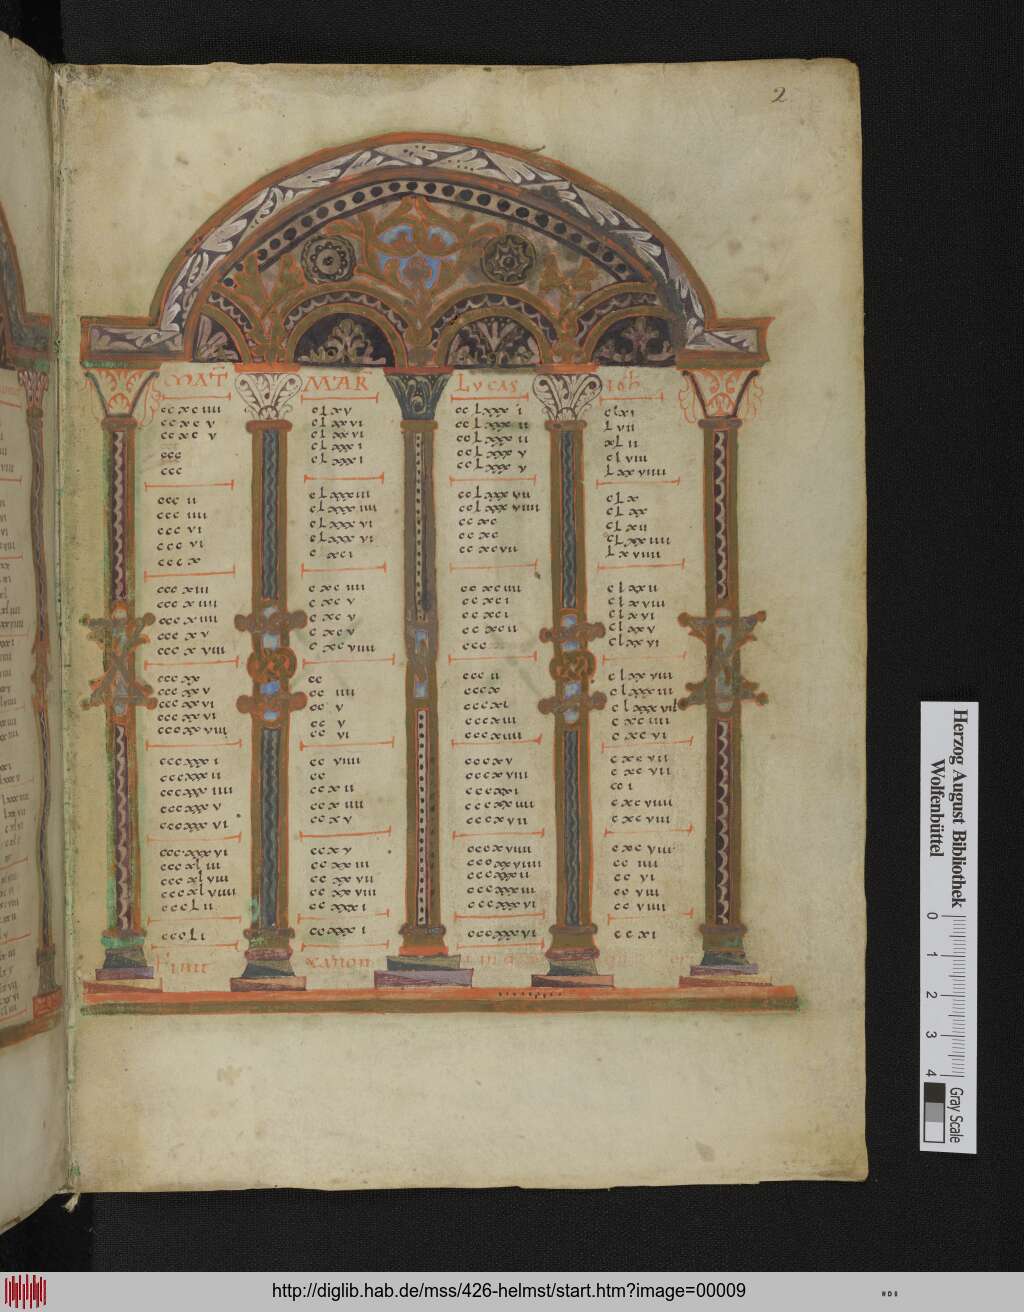 2
MAT MAR LVCAS IOH
ccxciiii clxv cclxxxi clxi
ccxcv clxxvi cclxxxii lvii
ccxcv clxxvi cclxxxii xlii
ccc clxxxi cclxxxv clviii
ccc clxxxi cclxxxv lxxviiii
cccii clxxxiii cclxxxvii clxx
ccciiii clxxxiiii cclxxxviiii clxx
cccvi clxxxvi ccxc clxii
cccvi clxxxvi ccxc clxxiiii
cccx cxci ccxcvii lxviiii
cccxiii cxciiii ccxciiii clxxii
cccxiiii cxcv ccxci clxviii
cccxiiii cxcv ccxci clxvi
cccxv cxcv ccxcii clxxv
cccxviii cxcviiii ccc clxxvi
cccxx cc cccii clxxviii
cccxxv cciiii cccx clxxxiii
cccxxvi ccv cccxi clxxxvii
cccxxvi ccv cccxiii cxciiii
cccxxviii ccvi cccxiiii cxcvi
cccxxxi ccviiii cccxv cxcvii
cccxxxii cc cccxviii cxcvii
cccxxxiiii ccxii cccxxi cci
cccxxxv ccxiiii cccxxiiii cxcviiii
cccxxxvi ccxv cccxvii cxcviii
cccxxxvi ccxv cccxviiii cxcviii
cccxliii ccxxiii cccxxviiii cciiii
cccxlviii ccxxvii cccxxxii ccvi
cccxlviiii ccxxviii cccxxxiii ccviii
cccLii ccxxxi cccxxxvi ccviiii
cccLi ccxxxi cccxxxvi ccxi
Finit canon
Herzog August Bibliothek
Wolfenbüttel
0 1 2 3 4
Gray Scale
http://diglib.hab.de/mss/426-helmst/start.htm?image=00009